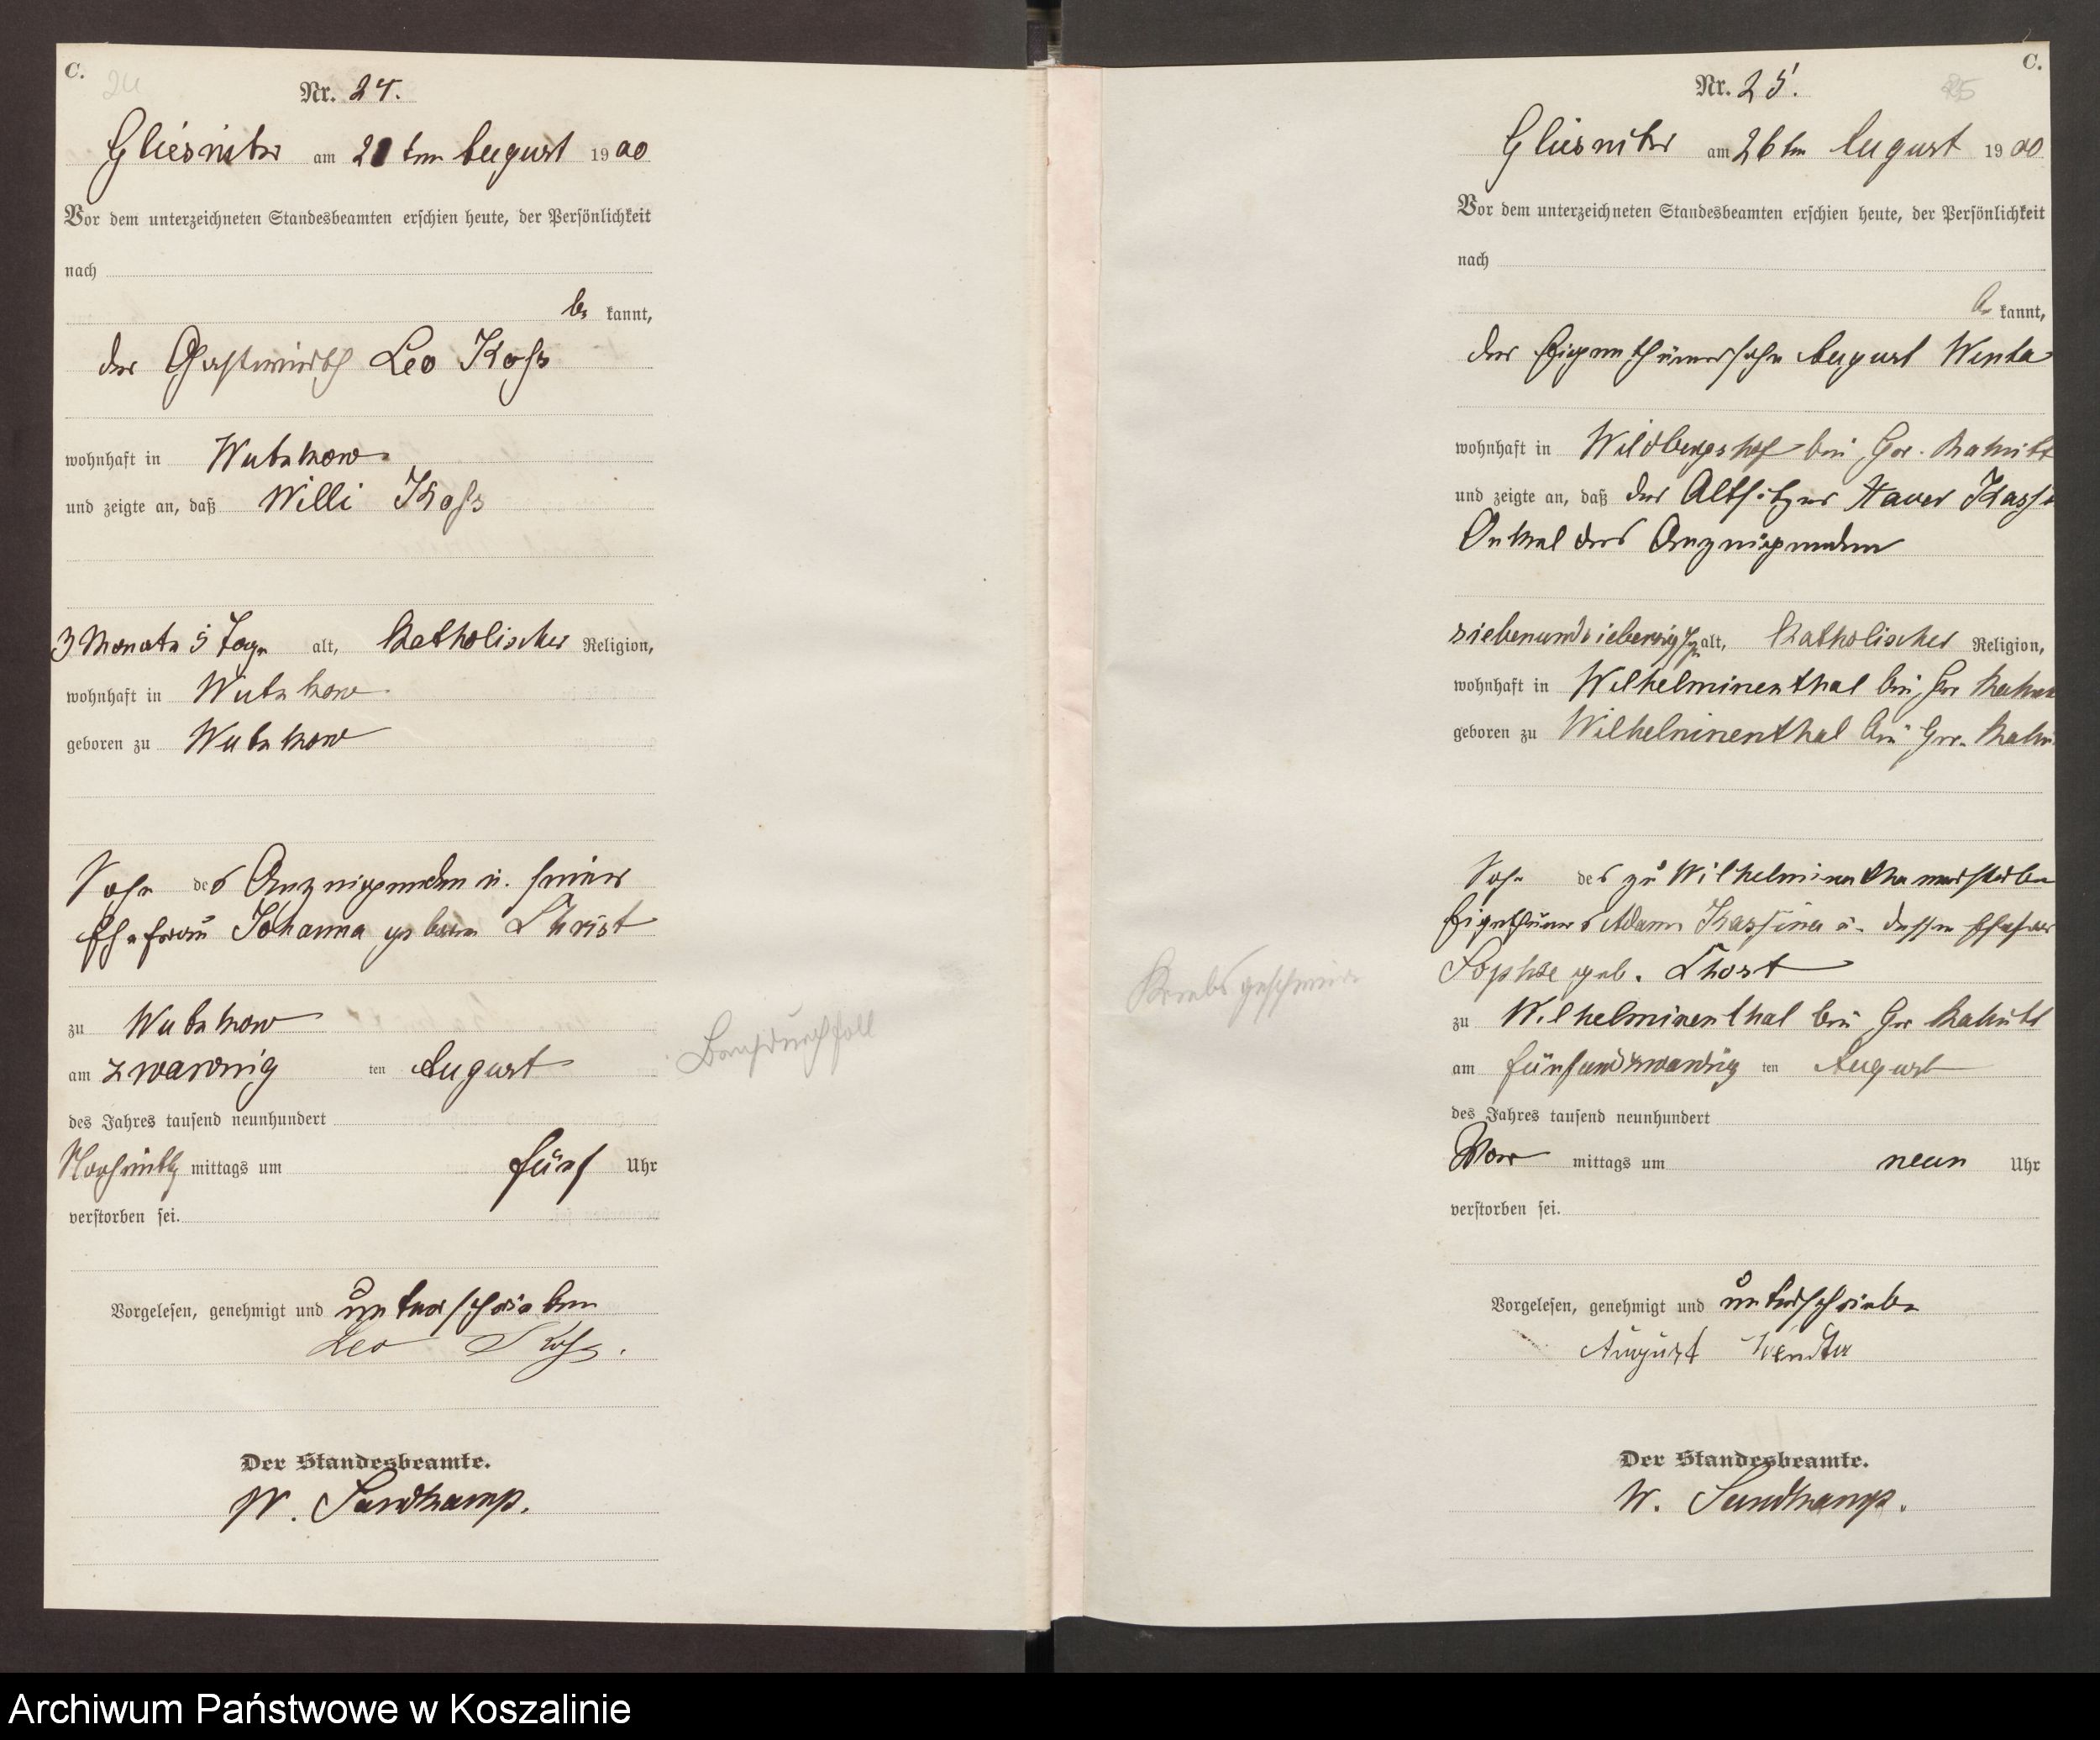 C.
24
Nr. 24.
Gliesnitz am 21 ten August 1900
Vor dem unterzeichneten Standesbeamten erschien heute, der Persönlichkeit
nach
be kannt,
der Gastwirth Leo Koss
wohnhaft in Wutzkow
und zeigte an, daß Willi Koss
3 Monate 5 Tage alt, katholischer Religion,
wohnhaft in Wutzkow
geboren zu Wutzkow
Sohn des Anzeigenden u. seiner
Ehefrau Johanna geborn Christ
zu Wutzkow
am zwanzig ten August
des Jahres tausend neunhundert
Nachmittg mittags um fünf Uhr
verstorben sei.
Vorgelesen, genehmigt und unterschrieben
Leo Koss.
Der Standesbeamte.
W. Sandkamp.
Brechdurchfall
C.
25
Nr. 25.
Gliesnitz am 26 ten August 1900
Vor dem unterzeichneten Standesbeamten erschien heute, der Persönlichkeit
nach
be kannt,
der Eigenthümersohn August Wenta
wohnhaft in Wildbergshof bei Gr.
und zeigte an, daß der Altsitzer Xaver
Onkel des Anzeigenden
siebenundsiebenzig J. alt, katholischer Religion,
wohnhaft in Wilhelminenthal bei Gr
geboren zu Wilhelminenthal bei Gr.
Sohn des zu Wilhelminenthal verstorben
Eigenthümers Adam u. dessen Ehefrau
Sophie geb.
zu Wilhelminenthal bei Gr
am fünfundzwanzig ten August
des Jahres tausend neunhundert
Vor mittags um neun Uhr
verstorben sei.
Vorgelesen, genehmigt und unterschrieben
August Wendta
Der Standesbeamte.
W. Sandkamp.
Krebsgeschwür
Archiwum Państwowe w Koszalinie